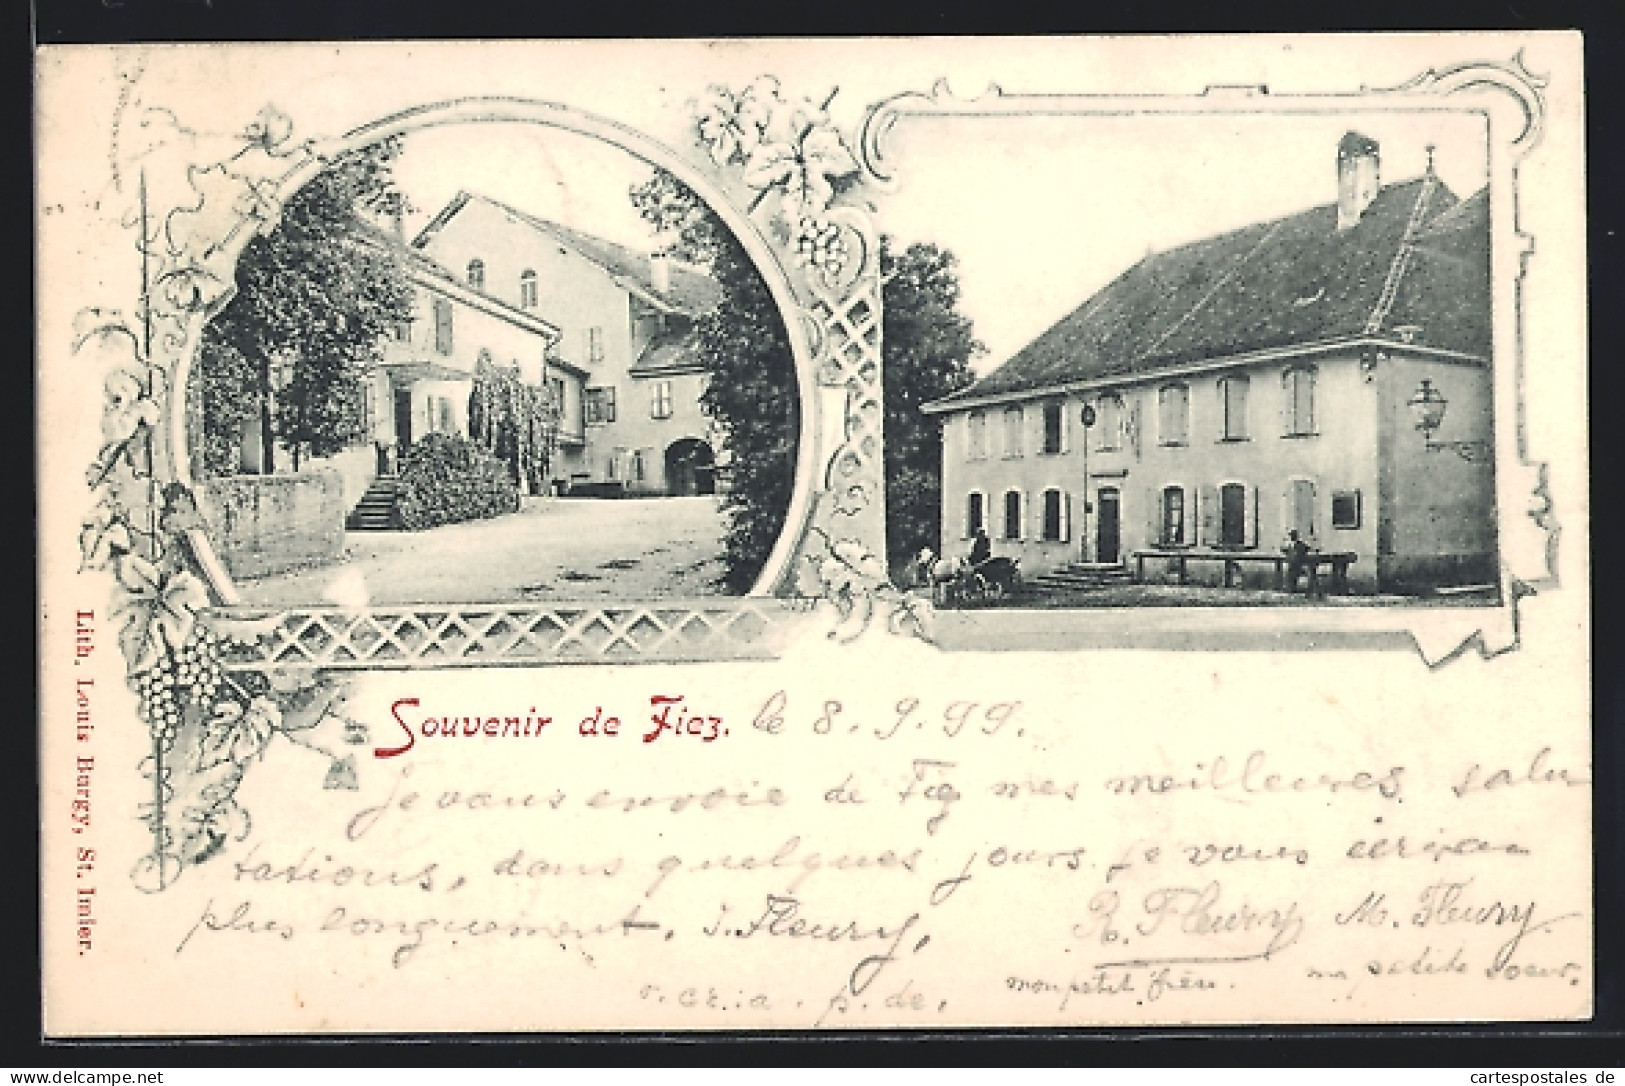 Souvenir de Fiez. le 8. 9. 99.
Je vous envoie de Fiez mes meilleures salu
tations, dans quelques jours je vous écrirai
plus longuement. J. Fleury, R. Fleury M. Fleury.
mon petit frère. ma petite soeur.
p. de.
Lith. Louis Burgy, St. Imier.
www.ansichtskartenversand.com
cartespostales de